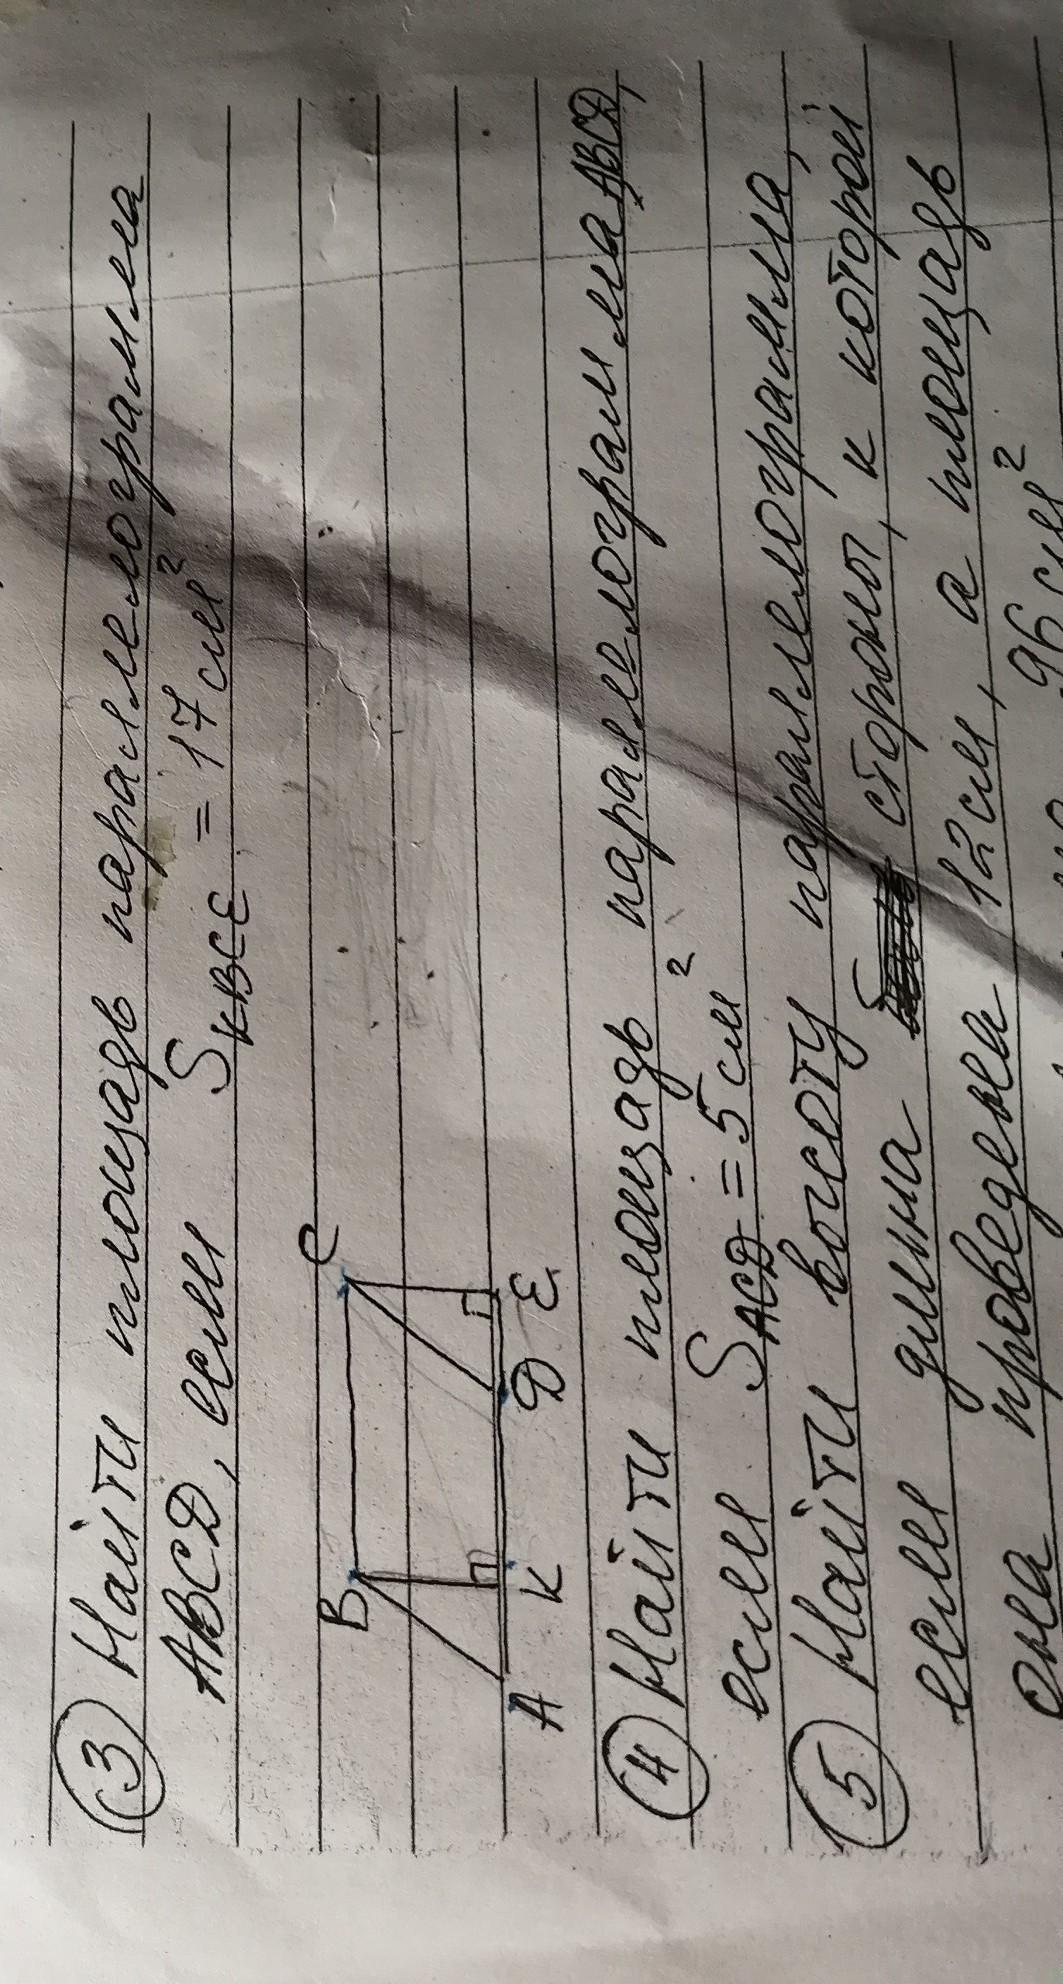 ③ Найти площадь параллелограмма
ABCD, если S KBCE = 17 см²
B C
A K D E
④ Найти площадь параллелограмма ABCD,
если S ACD = 5 см²
⑤ Найти высоту параллелограмма,
если длина стороны, к которой
она проведена 12 см, а площадь
96 см²